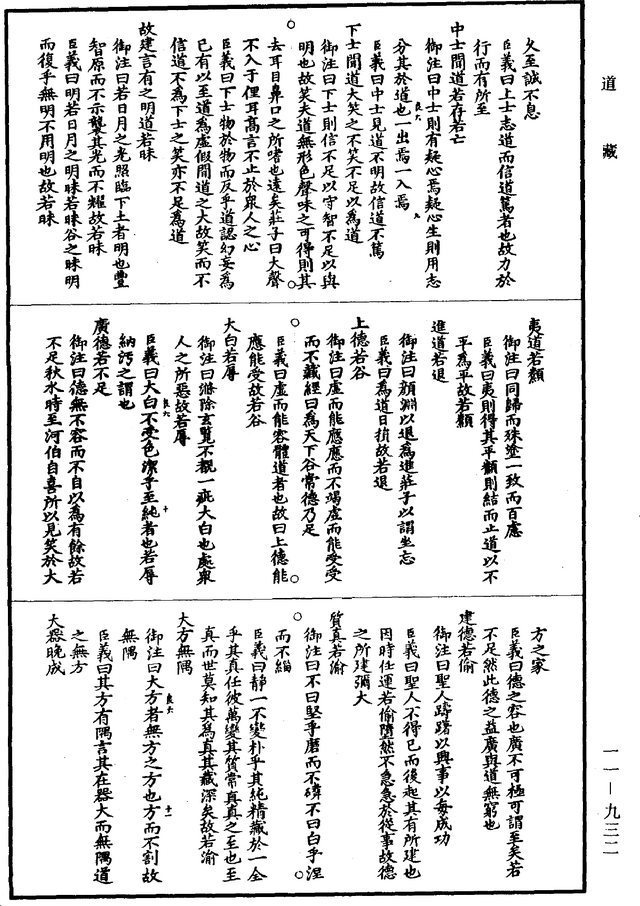 道藏
久至誠不息
臣義曰上士志道而信道篤者也故力於
行而有所至
中士聞道若存若亡
御注曰中士則有疑心焉疑心生則用志
分其於道也一出焉一入焉
臣義曰中士見道不明故信道不篤
下士聞道大笑之不笑不足以為道
御注曰下士則信不足以守智不足以與
明也故笑夫道無形色聲味之可得則其
去耳目鼻口之所嗜也遠矣莊子曰大聲
不入于俚耳高言不止於衆人之心
臣義曰下士物於物而反乎道認幻妄為
已有以至道為虛假聞道之大故笑而不
信道不為下士之笑亦不足為道
故建言有之明道若昧
御注曰若日月之光照臨下土者明也豐
智原而不示襲其光而不耀故若昧
臣義曰明若日月之明昧若昧谷之昧明
而復乎無明不用明也故若昧
夷道若纇
御注曰同歸而殊塗一致而百慮
臣義曰夷則得其平纇則結而止道以不
平為平故若纇
進道若退
御注曰顔淵以退為進莊子以謂坐忘
臣義曰為道日損故若退
上德若谷
御注曰虛而能應應而不竭虛而能受受
而不藏經曰為天下谷常德乃足
臣義曰虛而能容體道者也故曰上德能
應能受故若谷
大白若辱
御注曰滌除玄覽不覩一疵大白也處衆
人之所惡故若辱
臣義曰大白不受色潔乎至純者也若辱
納汚之謂也
廣德若不足
御注曰德無不容而不自以為有餘故若
不足秋水時至河伯自喜所以見笑於大
方之家
臣義曰德之容也廣不可極可謂至矣若
不足然此德之益廣與道無窮也
建德若偷
御注曰聖人躊躇以興事以每成功
臣義曰聖人不得已而後起其有所建也
因時任運若偷墮然不急急於從事故德
之所建彌大
質真若渝
御注曰不曰堅乎磨而不磷不曰白乎涅
而不緇
臣義曰靜一不變朴乎其純精藏於一全
乎其真任彼萬變其質常真真之至也至
真而世莫知其為真其藏深矣故若渝
大方無隅
御注曰大方者無方之方也方而不割故
無隅
臣義曰其方有隅言其在器大而無隅道
之無方
大器晚成
一一—九三二